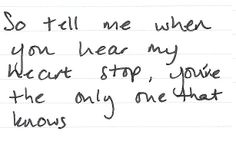 So tell me when
you hear my
heart stop, you're
the only one that
knows